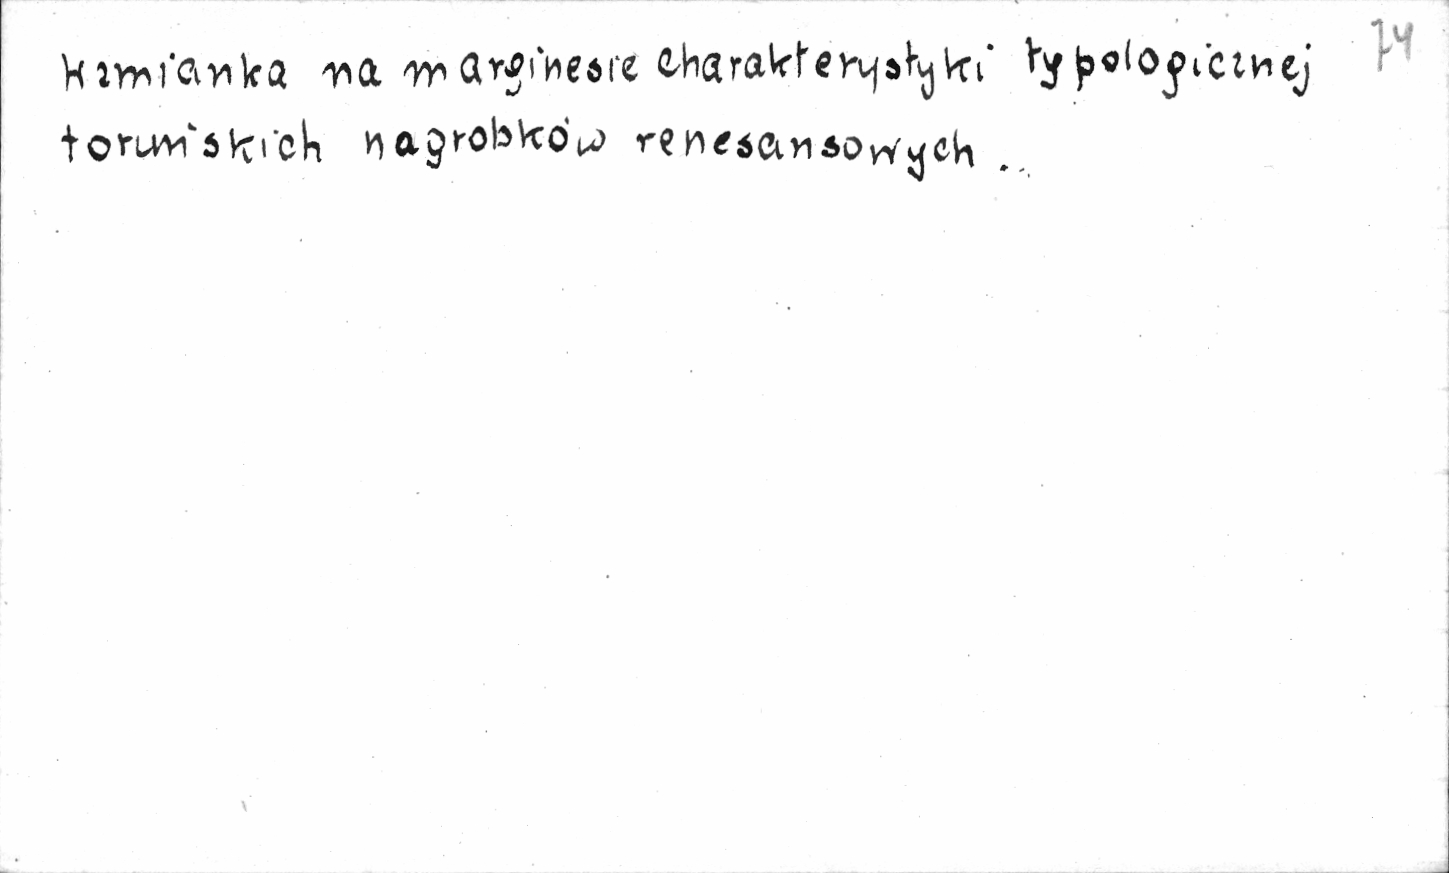 Wzmianka na marginesie charakterystyki typologicznej 74
toruńskich nagrobków renesansowych ...